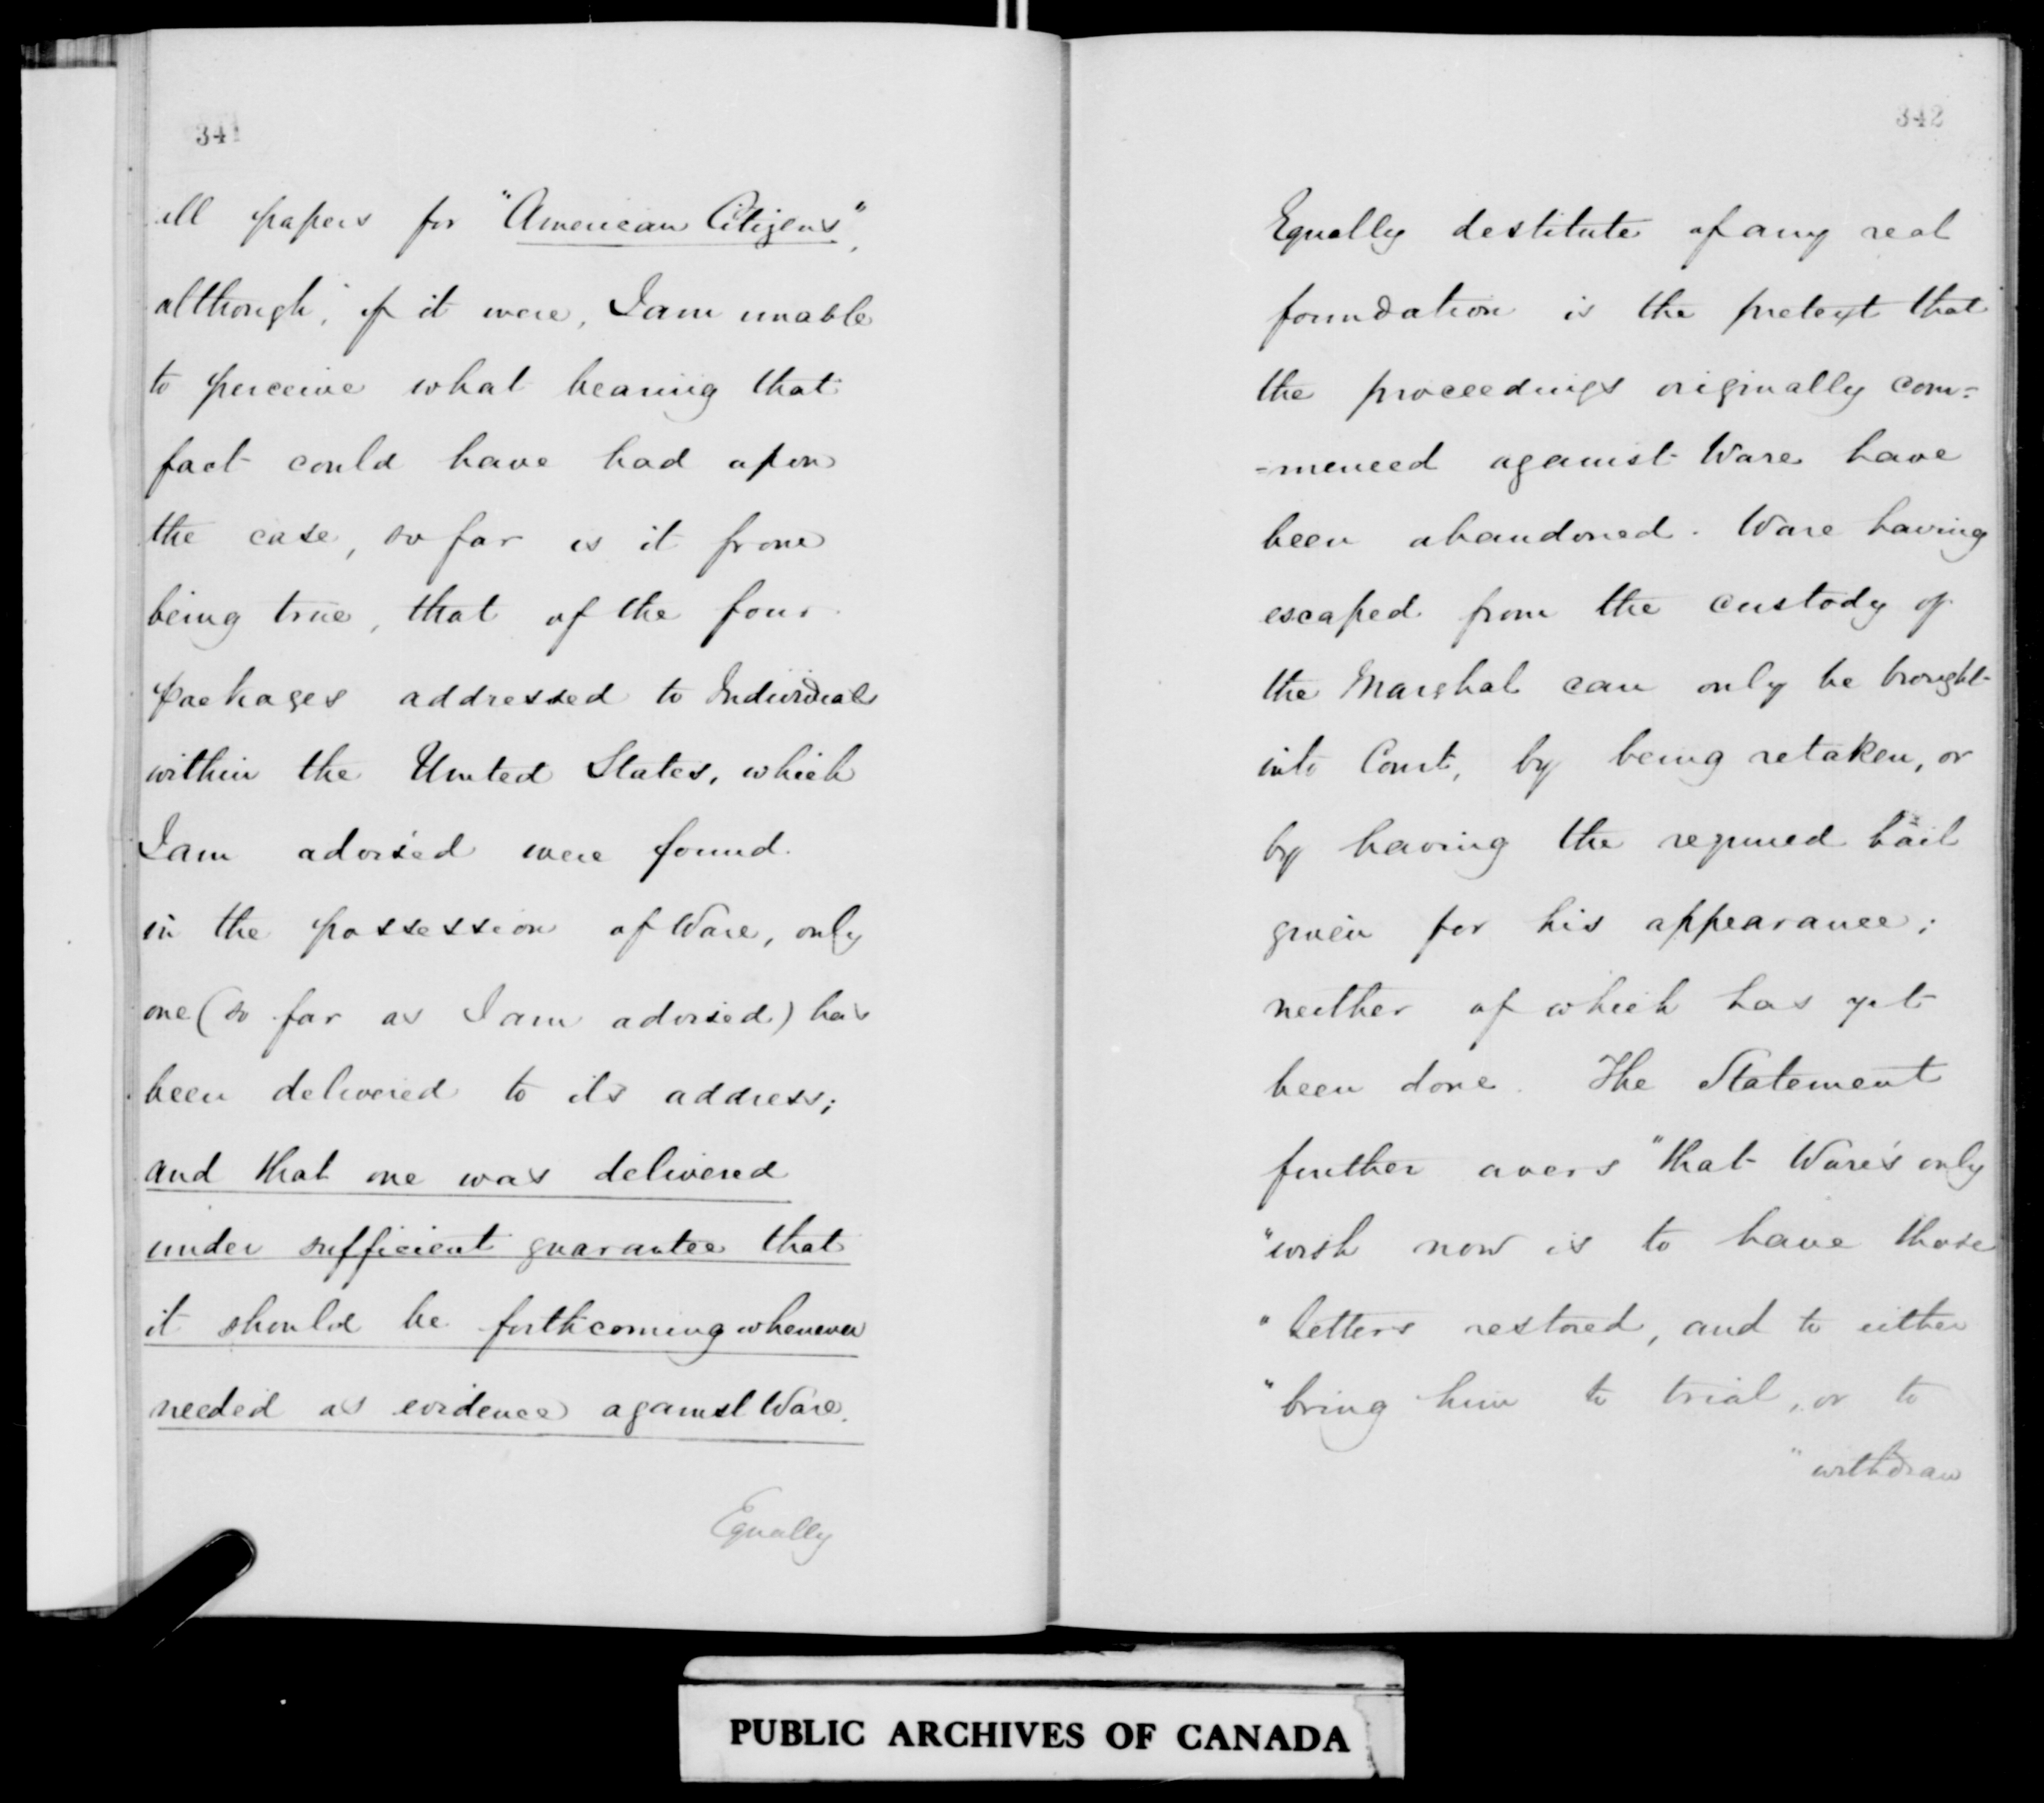 341
all papers for "American Citizens",
although, if it were, I am unable
to perceive what bearing that
fact could have had upon
the case, so far is it from
being true, that of the four
packages addressed to Individuals
within the United States, which
I am advised were found
in the possession of Ware, only
one (so far as I am advised) has
been delivered to its address;
and that one was delivered
under sufficient guarantee that
it should be forthcoming whenever
needed as evidence against Ware.
Equally
342
Equally destitute of any real
foundation is the pretext that
the proceedings originally com=
=menced against Ware have
been abandoned. Ware having
escaped from the custody of
the Marshal can only be brought
into Court, by being retaken, or
by having the required bail
given for his appearance;
neither of which has yet
been done. The Statement
further avers "that Ware's only
"wish now is to have those
"letters restored, and to either
"bring him to trial, or to
"withdraw
PUBLIC ARCHIVES OF CANADA